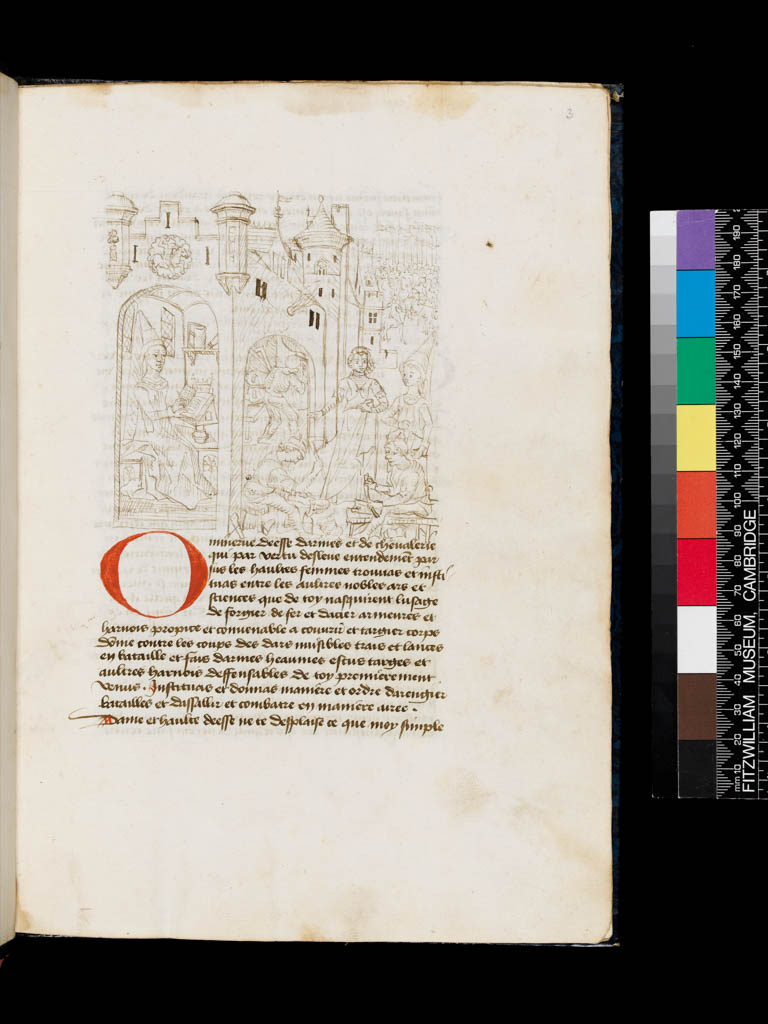 3
O minerve deesse darmes et de chevalerie
qui par vertu desleve entendement par
sus les haultes femmes trouvas et insti
tuas entre les aultres nobles ars et
sciences que de toy nasquirent lusage
de forgier de fer et dacier armeures et
harnois propice et convenable a couvrir et targier corps
dome contre les coups des dars nuisibles trais et lances
en bataille et fais darmes heaumes escus targes et
aultres harnois deffensables de toy premierement
venus. Instituas et donnas maniere et ordre darengier
batailles et dassallir et combatre en maniere
Dame et haulte deesse ne te desplaise ce que moy simple
mm10 20 30 40 50 60 70 80 90 100 110 120 130 140 150 160 170 180 190
FITZWILLIAM MUSEUM, CAMBRIDGE